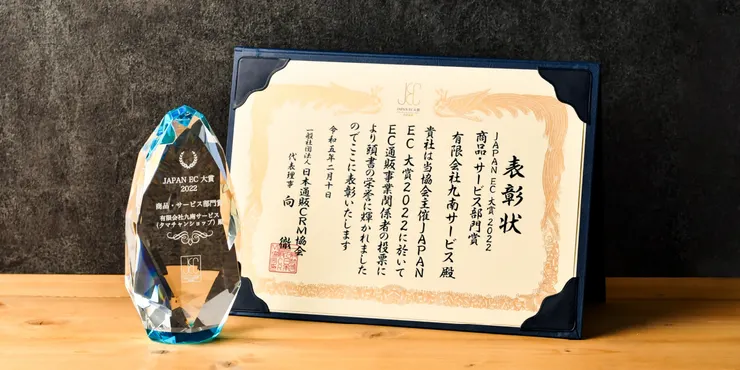 JAPAN EC 大賞
2022
商品・サービス部門賞
有限会社九南サービス
(タマチャンショップ) 殿
JEC
表彰状
JAPAN EC 大賞 2022
商品・サービス部門賞
有限会社九南サービス殿
貴社は当協会主催JAPAN
EC大賞2022に於いて
EC通販事業関係者の投票に
より頭書の栄誉に輝かれました
のでここに表彰いたします
令和五年二月十日
一般社団法人日本通販CRM協会
代表理事 向 徹